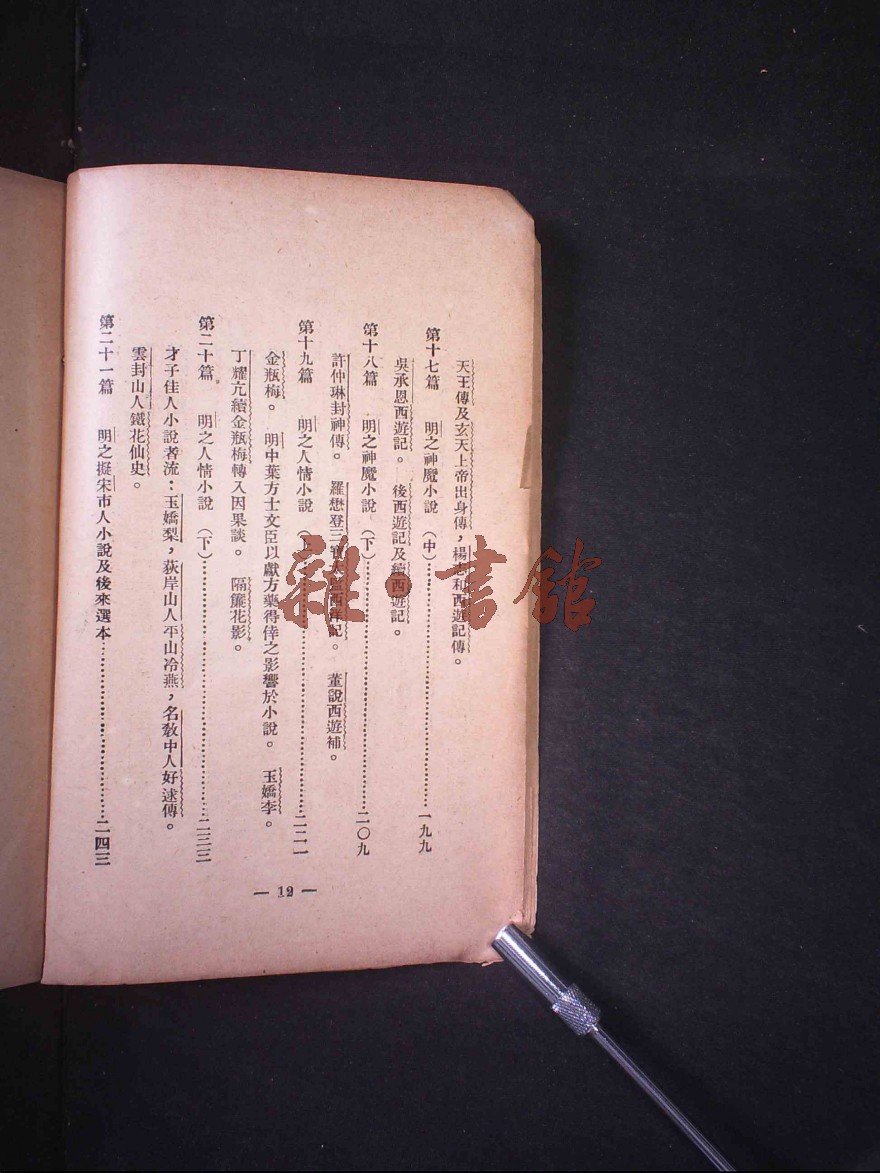 天王傳及玄天上帝出身傳，楊志和西遊記傳。
第十七篇 明之神魔小說（中）…………一九九
吳承恩西遊記。 後西遊記及續西遊記。
第十八篇 明之神魔小說（下）…………二〇九
許仲琳封神傳。 羅懋登三寶太監西洋記。 董說西遊補。
第十九篇 明之人情小說（上）…………二二一
金瓶梅。 明中葉方士文臣以獻方藥得倖之影響於小說。 玉嬌李。
丁耀亢續金瓶梅轉入因果談。 隔簾花影。
第二十篇 明之人情小說（下）…………二三三
才子佳人小說者流：玉嬌梨，荻岸山人平山冷燕，名教中人好逑傳。
雲封山人鐵花仙史。
第二十一篇 明之擬宋市人小說及後來選本…………二四三
— 12 —
雜·書館